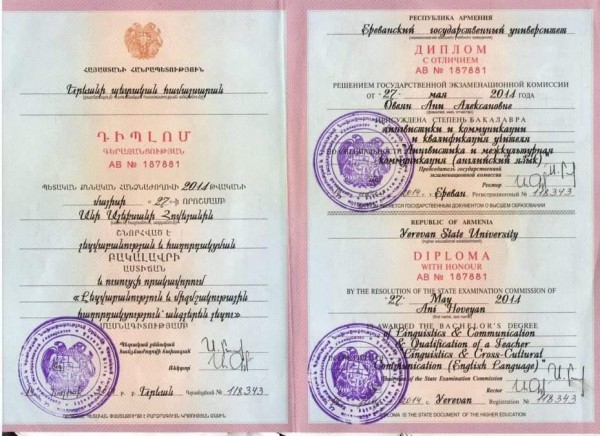 ՀԱՅԱՍՏԱՆԻ ՀԱՆՐԱՊԵՏՈՒԹՅՈՒՆ
Երևանի պետական համալսարան
ԴԻՊԼՈՄ
ԳԵՐԱԶԱՆՑՈՒԹՅԱՄԲ
AB № 187881
ՊԵՏԱԿԱՆ ՔՆՆԱԿԱՆ ՀԱՆՁՆԱԺՈՂՈՎԻ 2014 ԹՎԱԿԱՆԻ
մայիսի «27» ՈՐՈՇՄԱՄԲ
Անի Ալեքսանի Հովեյանին
ՇՆՈՐՀՎԱԾ Է
լեզվաբանության և հաղորդակցման
ԲԱԿԱԼԱՎՐԻ
ԱՍՏԻՃԱՆ
և ուսուցչի որակավորում
«Լեզվաբանություն և միջմշակութային
հաղորդակցություն՝ անգլերեն լեզու»
ՄԱՍՆԱԳԻՏՈՒԹՅԱՄԲ
Պետական քննական
հանձնաժողովի նախագահ
Ռեկտոր
Երևան Գրանցման № 118343
РЕСПУБЛИКА АРМЕНИЯ
Ереванский государственный университет
ДИПЛОМ
С ОТЛИЧИЕМ
АВ № 187881
РЕШЕНИЕМ ГОСУДАРСТВЕННОЙ ЭКЗАМЕНАЦИОННОЙ КОМИССИИ
ОТ «27» мая 2014 ГОДА
Овеян Ани Алексановне
ПРИСУЖДЕНА СТЕПЕНЬ БАКАЛАВРА
лингвистики и коммуникации
и квалификация учителя
Лингвистика и межкультурная
коммуникация (английский язык)
Председатель государственной
экзаменационной комиссии
Ректор
2014 г. Ереван Регистрационный № 118343
ЯВЛЯЕТСЯ ГОСУДАРСТВЕННЫМ ДОКУМЕНТОМ О ВЫСШЕМ ОБРАЗОВАНИИ
REPUBLIC OF ARMENIA
Yerevan State University
DIPLOMA
WITH HONOUR
AB № 187881
BY THE RESOLUTION OF THE STATE EXAMINATION COMMISSION OF
«27» May 2014
Ani Hoveyan
IS AWARDED THE BACHELOR'S DEGREE
of Linguistics & Communication
& Qualification of a Teacher
Linguistics & Cross-Cultural
Communication (English Language)
Chairman of the State Examination Commission
Rector
2014 Yerevan Registration № 118343
DIPLOMA IS THE STATE DOCUMENT OF THE HIGHER EDUCATION